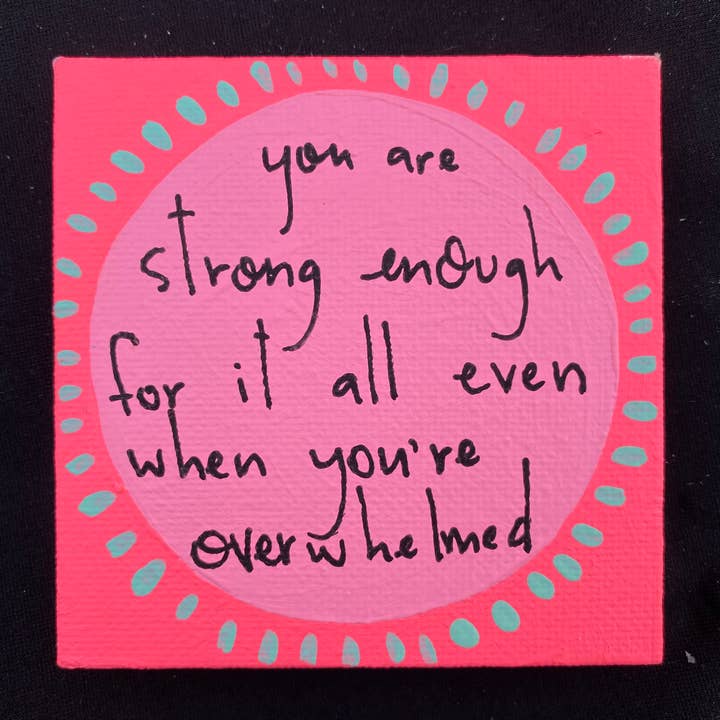 you are
strong enough
for it all even
when you're
overwhelmed